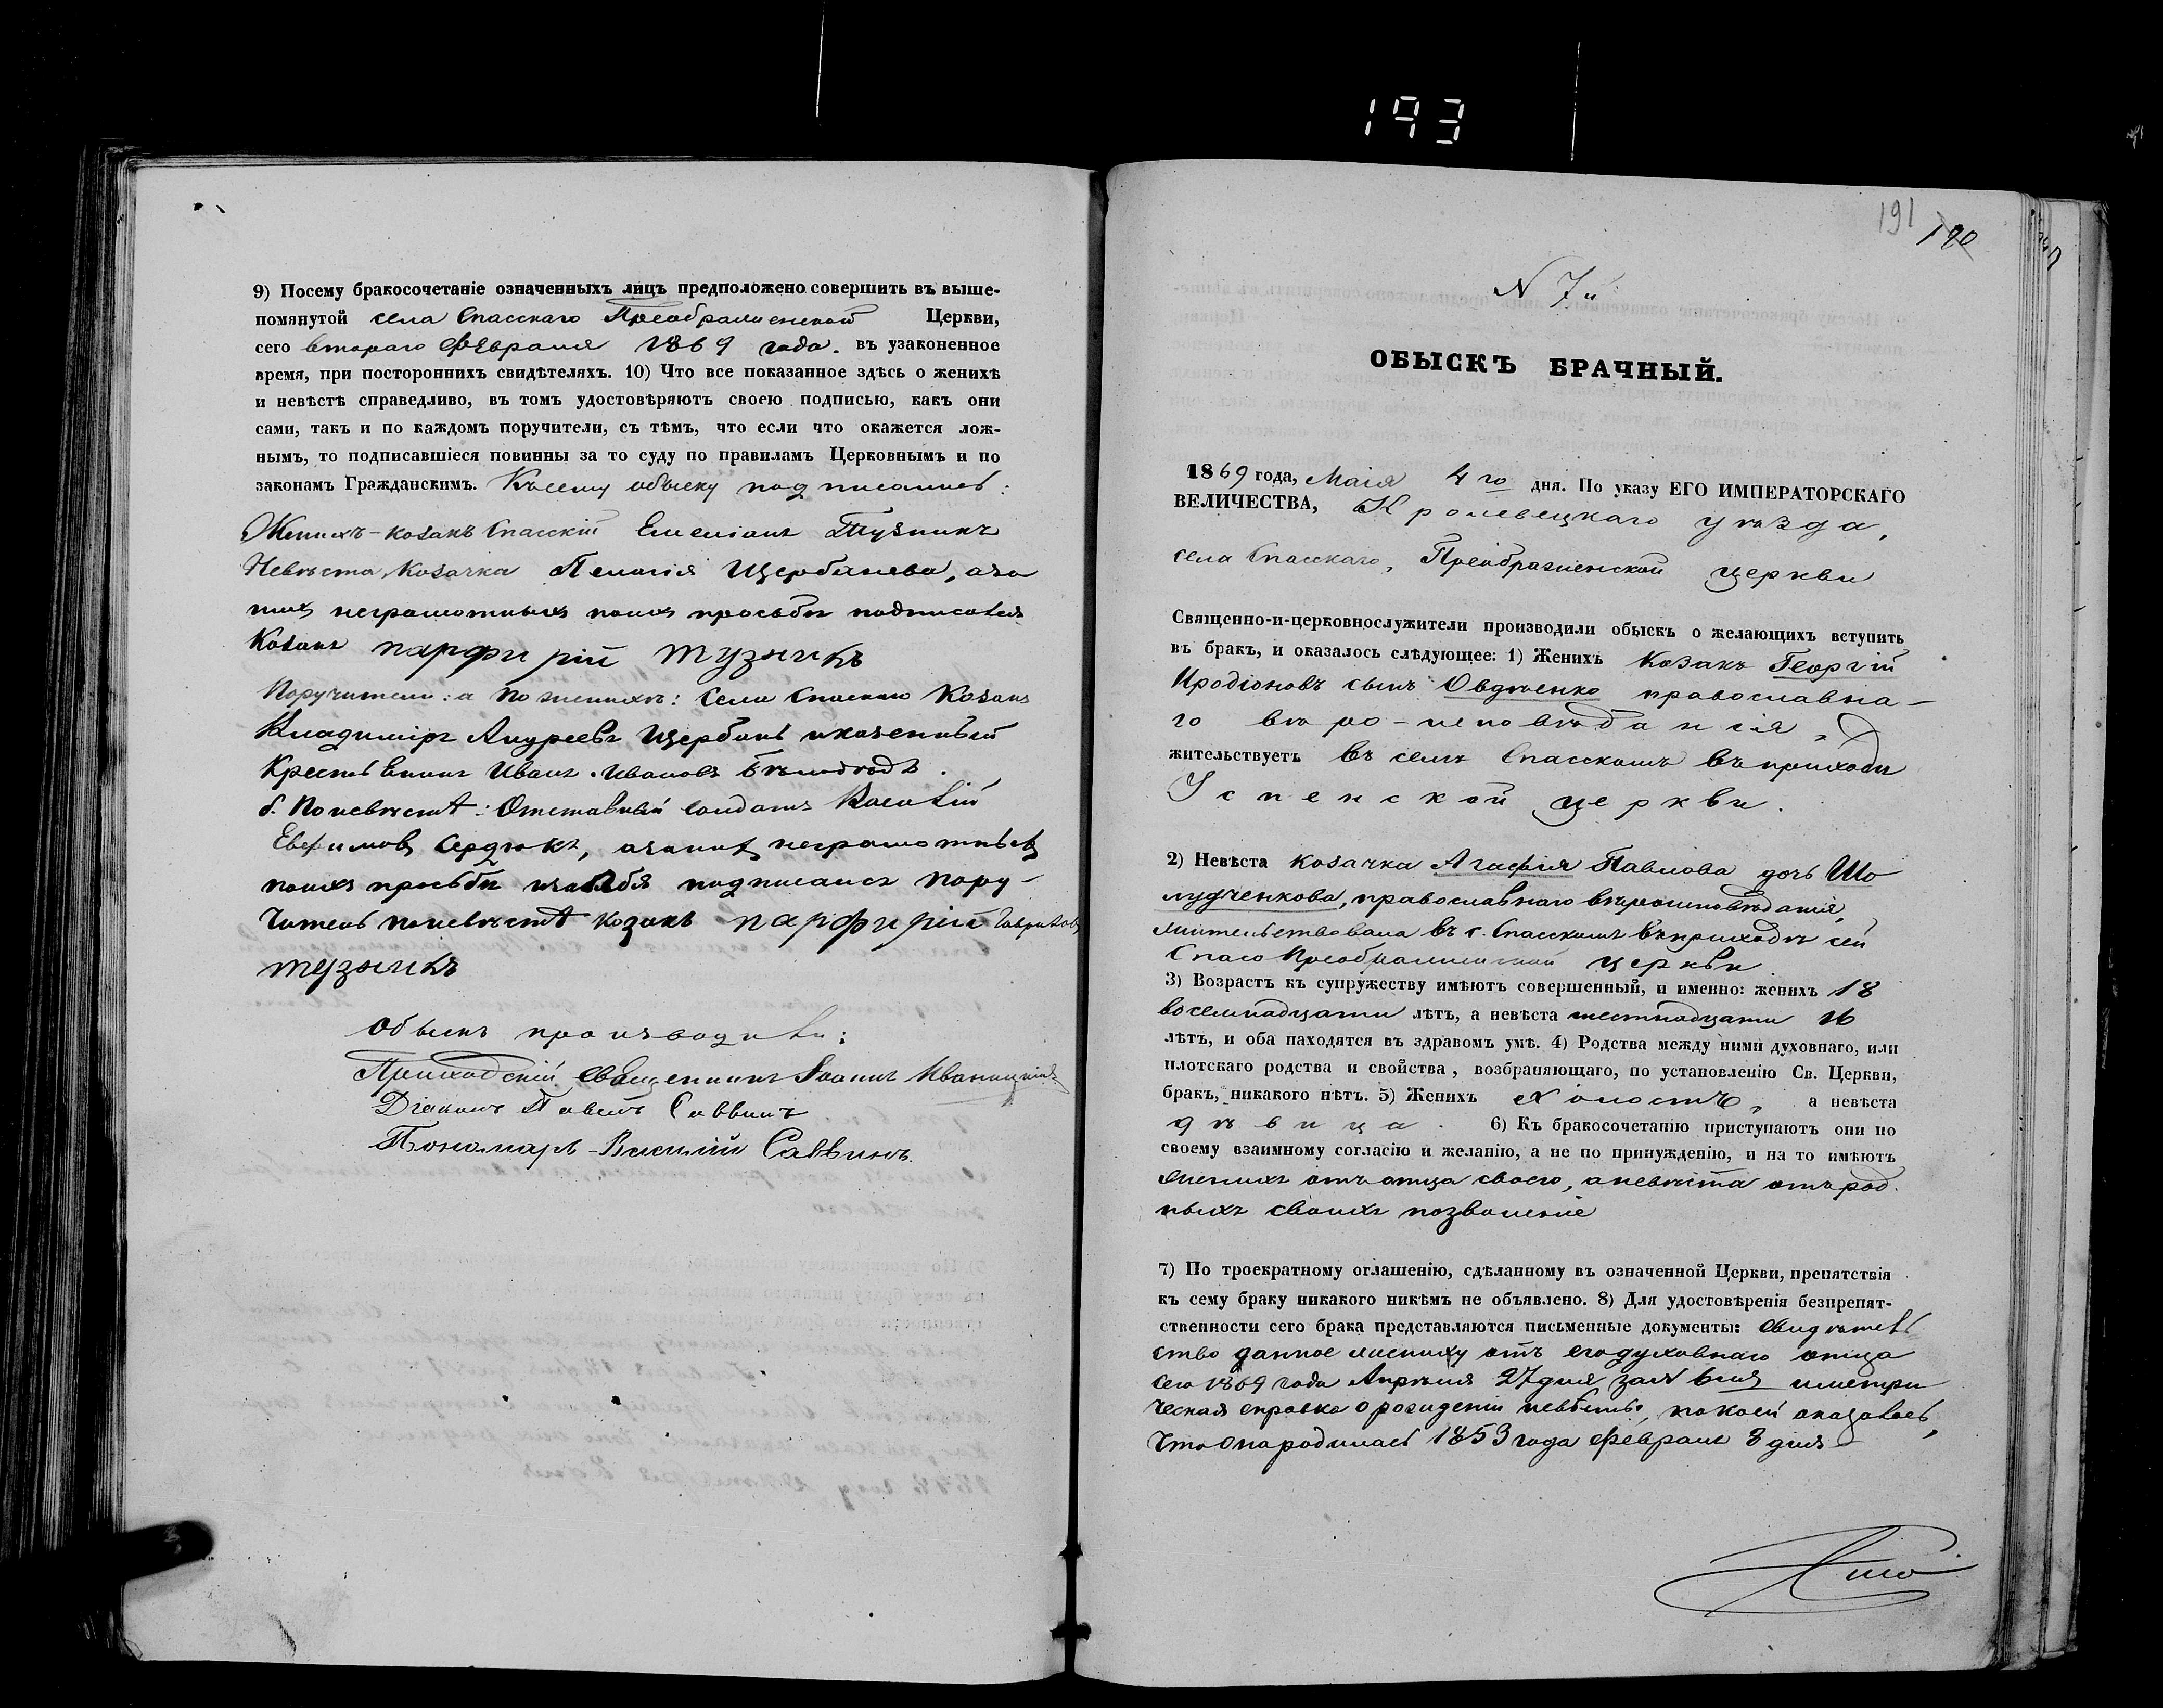 193
9) Посему бракосочетаніе означенныхъ лицъ предположено совершить въ выше-
помянутой села Спасскаго Преображенской Церкви,
сего втораго Февраля 1869 года. въ узаконенное
время, при постороннихъ свидѣтеляхъ. 10) Что все показанное здѣсь о женихѣ
и невѣстѣ справедливо, въ томъ удостовѣряютъ своею подписью, какъ они
сами, такъ и по каждомъ поручители, съ тѣмъ, что если что окажется лож-
нымъ, то подписавшіеся повинны за то суду по правиламъ Церковнымъ и по
законамъ Гражданскимъ. Къ сему обыску подписались:
Женихъ - козакъ Спасскій Емеліанъ Тузникъ
Невѣста, Козачка Пелагія Щербанева, а за
нихъ неграмотныхъ по ихъ просьбѣ подписался
Козакъ парфирій тузникъ
Поручители: а По женихѣ: Села Спаскаго Козакъ
Владиміръ Андреевъ Щербань и казенный
Крестьянинъ Иванъ Ивановъ
б. По невѣстѣ: Отставный солдатъ Василій
Евфимовъ Сердюкъ, а за нихъ неграмотныхъ
по ихъ просьбѣ и за себя подписался пору-
читель по невѣстѣ козакъ парфирій Гавриловъ
тузникъ
Обыскъ производили:
Приходскій священникъ Іоаннъ Иваницкій
Діаконъ Павелъ Саввинъ
Пономарь - Василій Саввинъ.
191 190
N 7й
ОБЫСКЪ БРАЧНЫЙ.
1869 года, Маія 4го дня. По указу ЕГО ИМПЕРАТОРСКАГО
ВЕЛИЧЕСТВА, Кролевецкаго уѣзда,
села Спасскаго, Преображенской церкви
Священно-и-церковнослужители производили обыскъ о желающихъ вступить
въ бракъ, и оказалось слѣдующее: 1) Женихъ Козакъ Георгій
Иродіоновъ сынъ Овдѣенко православна-
го вѣро-исповѣданія,
жительствуетъ въ селѣ Спасскомъ въ приходѣ
Успенской церкви.
2) Невѣста козачка Агафія Павлова дочь Шо
лудченкова, православнаго вѣроисповѣданія,
жительствовала въ с. Спасскомъ въ приходѣ сей
Спасо Преображенской церкви
3) Возрастъ къ супружеству имѣютъ совершенный, и именно: женихъ 18
восемнадцати лѣтъ, а невѣста шестнадцати 16
лѣтъ, и оба находятся въ здравомъ умѣ. 4) Родства между ними духовнаго, или
плотскаго родства и свойства, возбраняющаго, по установленію Св. Церкви,
бракъ, никакого нѣтъ. 5) Женихъ Холостъ, а невѣста
дѣвица. 6) Къ бракосочетанію приступаютъ они по
своему взаимному согласію и желанію, а не по принужденію, и на то имѣютъ
женихъ отъ отца своего, а невѣста отъ род-
ныхъ своихъ позволеніе
7) По троекратному оглашенію, сдѣланному въ означенной Церкви, препятствія
къ сему браку никакого никѣмъ не объявлено. 8) Для удостовѣренія безпрепят-
ственности сего брака представляются письменные документы: свидѣтель
ство данное жениху отъ его духовнаго отца
сего 1869 года Апрѣля 27 дня за N 6мъ и метри
ческая справка о рожденіи невѣсты, по коей оказалось,
что она родилась 1853 года Февраля 8 дня